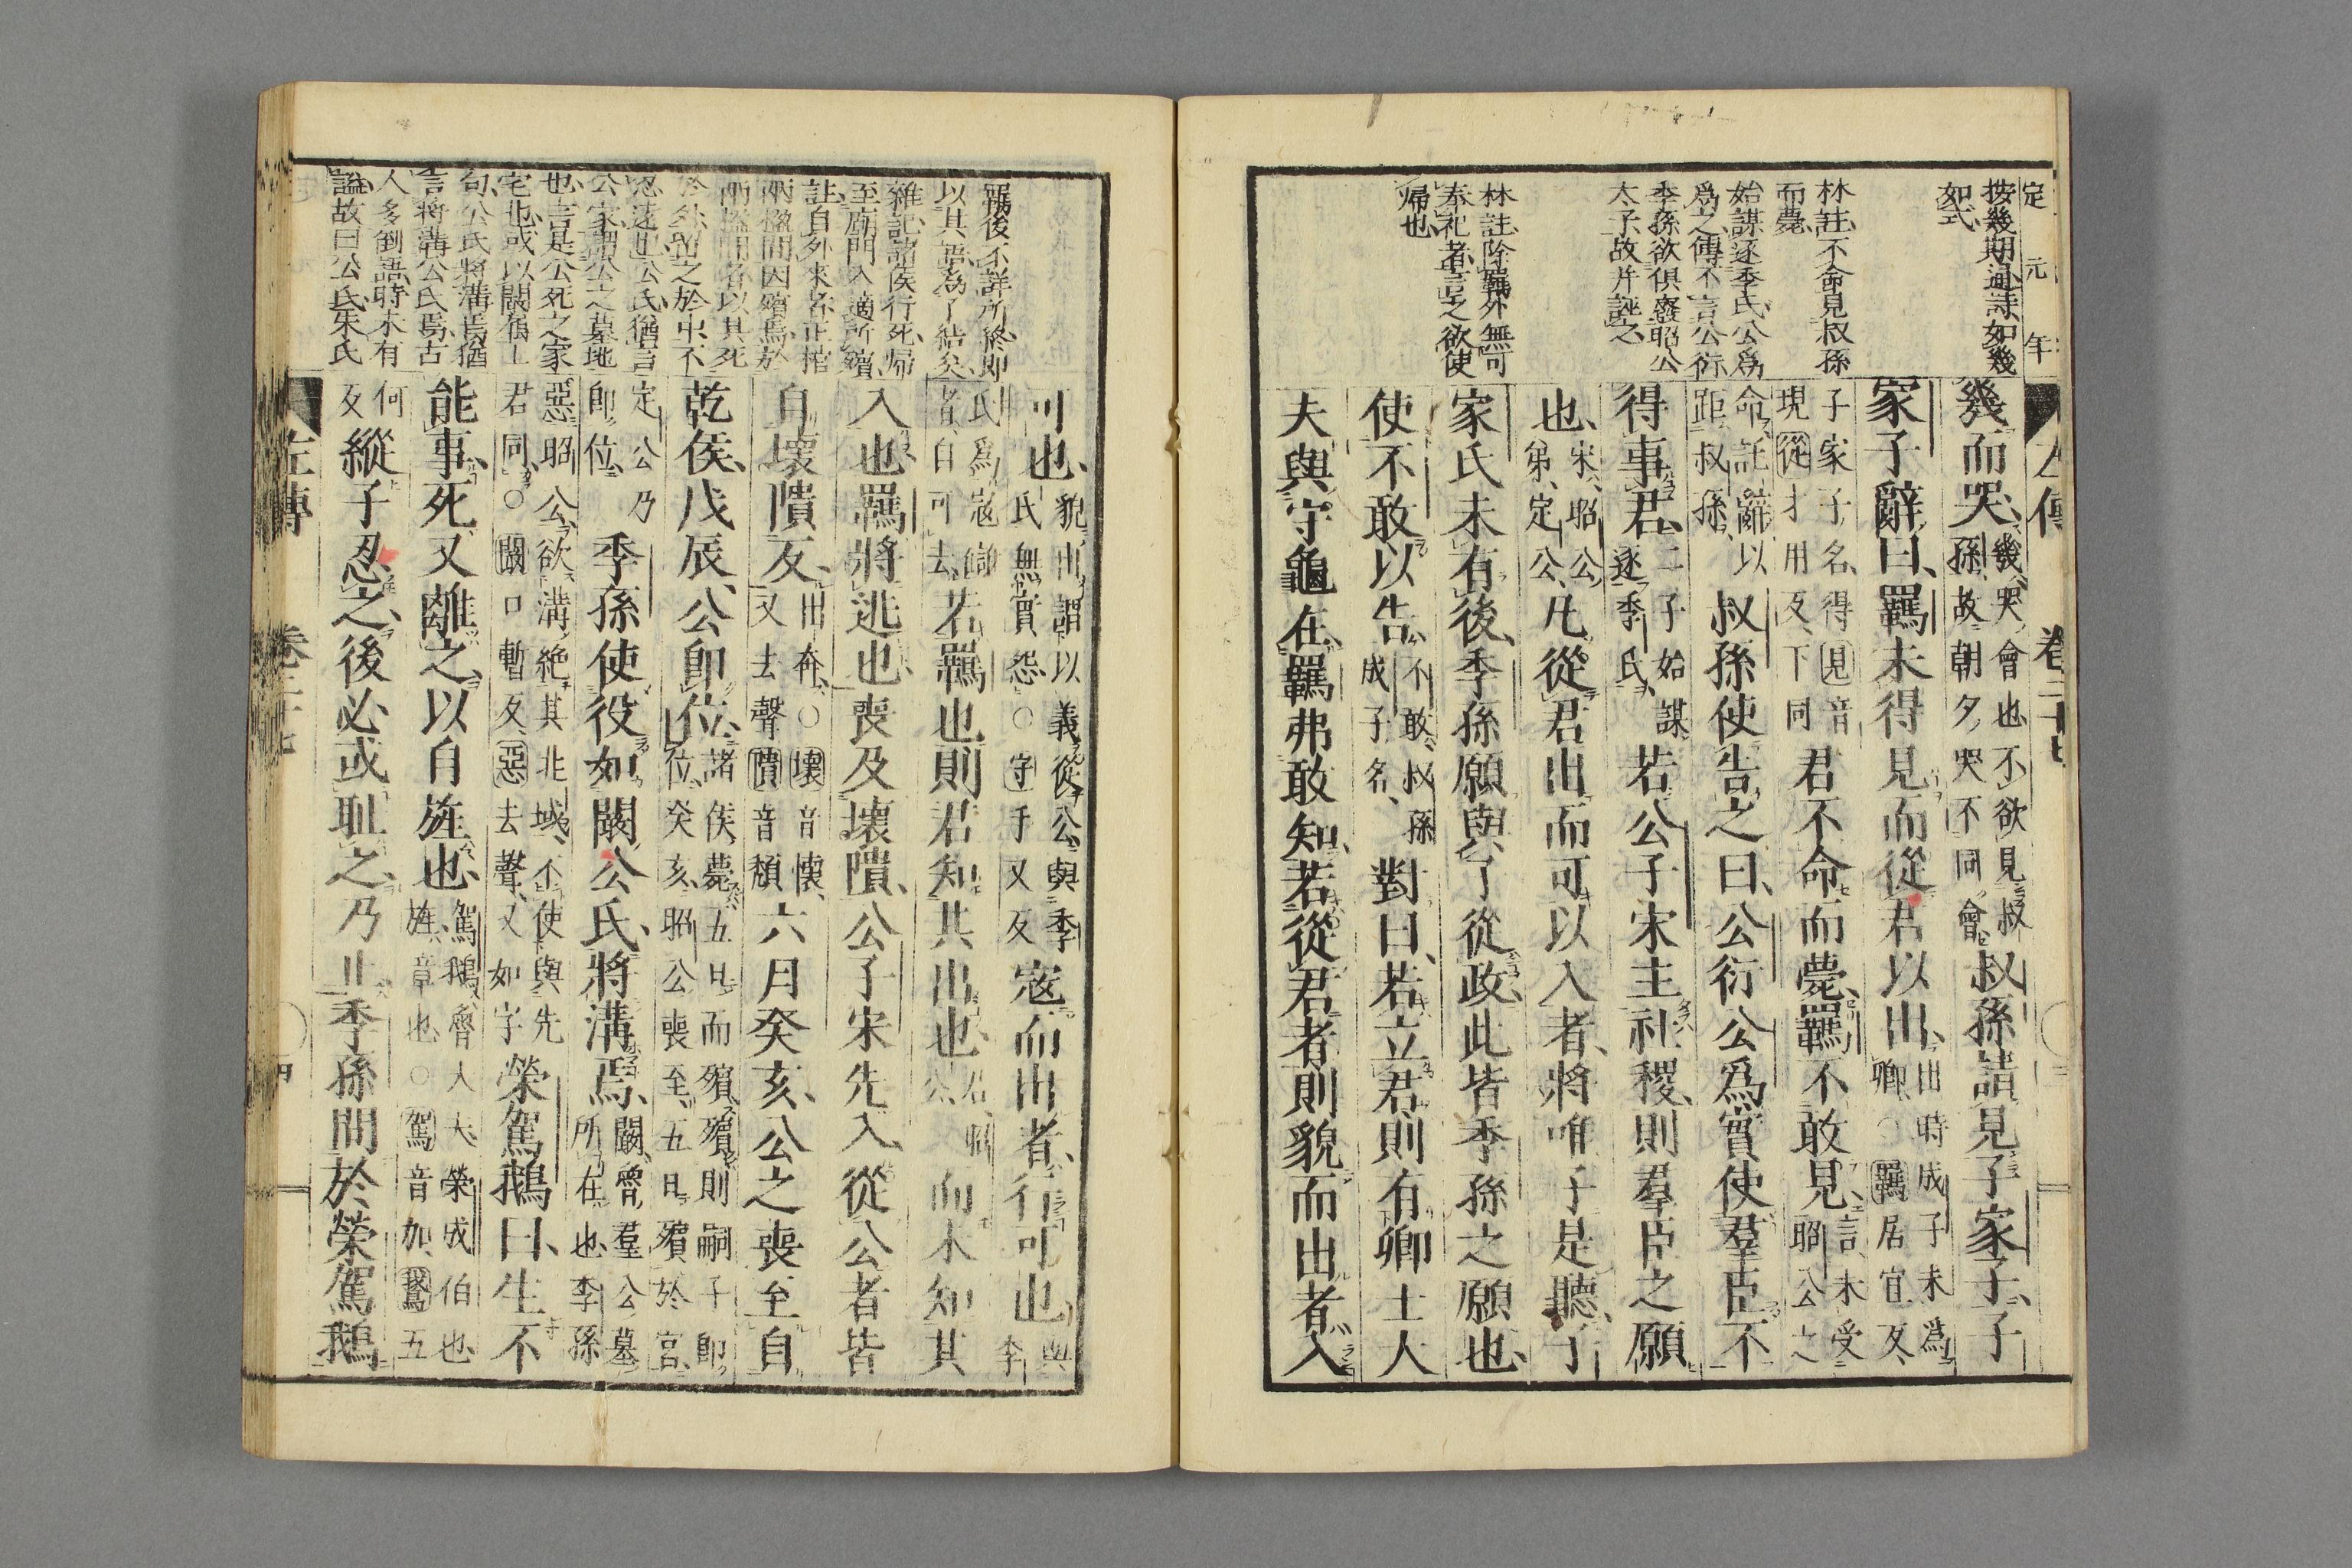 定元年
按幾期通詩如幾
如式
林註不命見叔孫
而薨
始謀逐季氏公爲
爲之傳不言公衍
季孫欲俱廢昭公
太子故并誣之
林註除羈外無可
奉祀者言之欲使
歸也
左傳 卷二十七
幾而哭幾哭會也不欲見叔孫故朝夕哭不同會叔孫請見子家子子
家子辭曰羈未得見而從君以出出時成子未爲卿○羈居宜反
子家子名得見音現從才用反下同君不命而薨羈不敢見言未受昭公之
命託辭以距叔孫叔孫使告之曰公衍公爲實使羣臣不
得事君二子始謀逐季氏若公子宋主社稷則羣臣之願
也宋昭公弟定公凡從君出而可以入者將唯子是聽子
家氏未有後季孫願與子從政此皆季孫之願也
使不敢以告不敢叔孫成子名對曰若立君則有卿士大
夫與守龜在羈弗敢知若從君者則貌而出者入
羈後不詳所終則
以其語爲了結矣
雜記諸侯行死歸
至廟門入適所殯
註自外來者正棺
兩楹間因殯焉於
兩楹間者以其死
於外留之於中不
忍遠也公氏猶言
公家謂公之墓地
也言是公死之家
宅也或以闞爲上
句公氏將溝焉猶
言將溝公氏焉古
人多倒語時未有
謚故曰公氏朱氏
可也貌出謂以義從公與季氏無實怨○守手又反寇而出者行可也與季
氏爲寇讎者自可去若羈也則君知其出也君昭公而未知其
入也羈將逃也喪及壞隤公子宋先入從公者皆
自壞隤反出奔○壞音懷又去聲隤音頹六月癸亥公之喪至自
乾侯戊辰公即位諸侯薨五日而殯殯則嗣子即位癸亥昭公喪至五日殯於宮
定公乃即位季孫使役如闞公氏將溝焉闞魯羣公墓所在也季孫
惡昭公欲溝絶其兆域不使與先君同○闞口暫反惡去聲又如字榮駕鵝曰生不
能事死又離之以自旌也駕鵝魯大夫榮成伯也旌章也○駕音加鵝五
何反縱子忍之後必或恥之乃止季孫問於榮駕鵝
左傳 卷二十七 四